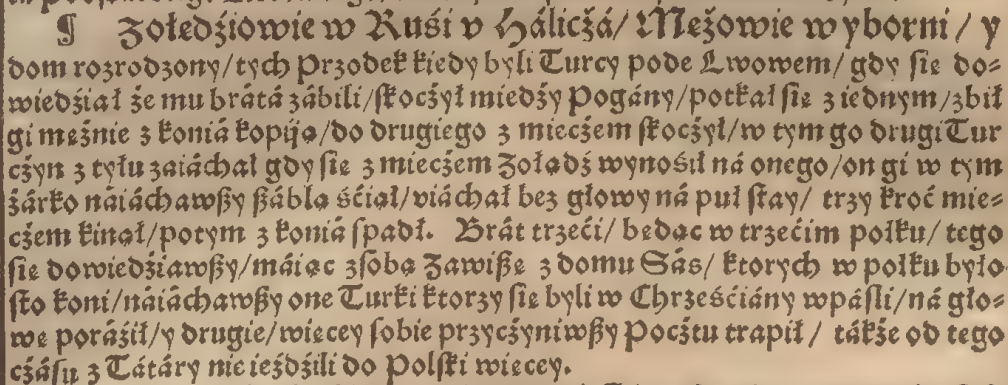 ¶ Zołedźiowie w Ruśi v Háliczá/ Mężowie wyborni / y
dom rozrodzony/tych Przodek kiedy byli Turcy pode Lwowem/ gdy sie do⸗
wiedźiał że mu brátá zábili/skoczył miedzy Pogány/potkał sie z iednym/zbił
gi meżnie z koniá kopiją/do drugiego z mieczem skoczył/w tym go drugi Tur
czyn z tyłu záiáchał gdy sie z mieczem Zoładź wynośił ná onego/on gi w tym
żárko náiáchawszy száblą śćiał/viáchał bez głowy ná puł stay/ trzy kroć mie⸗
czem kinął/potym z koniá spadł. Brát trzeći/ będąc w trzećim połku/ tego
sie dowiedźiawszy/máiąc zsobą Zawiszę z domu Sás/ ktorych w połku było
sto koni/náiáchawszy one Turki ktorzy sie byli w Chrześćiány wpáśli/ná gło⸗
wę poráźił/y drugie/więcey sobie przyczyniwszy Pocztu trapił / tákże od tego
czásu z Tátáry nie ieźdźili do Polski więcey.